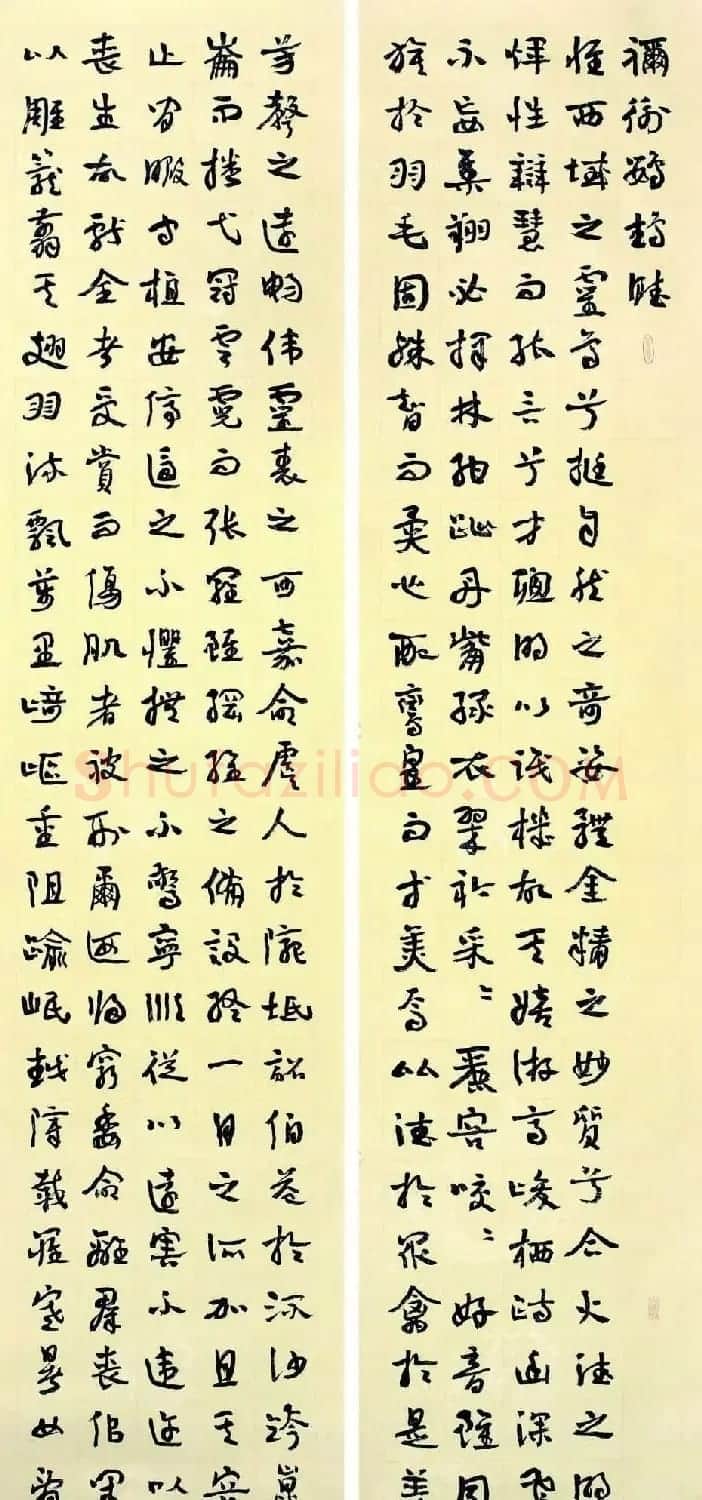 禰衡鸚鵡賦
惟西域之靈鳥兮挺自然之奇姿體金精之妙質兮合火德之明
煇性辯慧而能言兮才聰明以識機故其嬉游高峻栖跱幽深飛
不妄集翔必擇林紺趾丹觜綠衣翠衿采〻麗容咬〻好音雖同
族於羽毛固殊智而異心配鸞皇而等美焉比德於眾禽於是羨
芳聲之遠暢偉靈表之可嘉命虞人於隴坻詔伯益於流沙跨崑
崙而播弋冠雲霓而張羅雖綱維之備設終一目之所加且其容
止閑暇守植安停逼之不懼撫之不驚寧順從以遠害不違迕以
喪生故獻全者受賞而傷肌者被刑爾迺歸窮委命離群喪侶閉
以雕籠翦其翅羽流飄萬里崎嶇重阻踰岷越障載罹寒暑女辭
Shufaziliao.COM